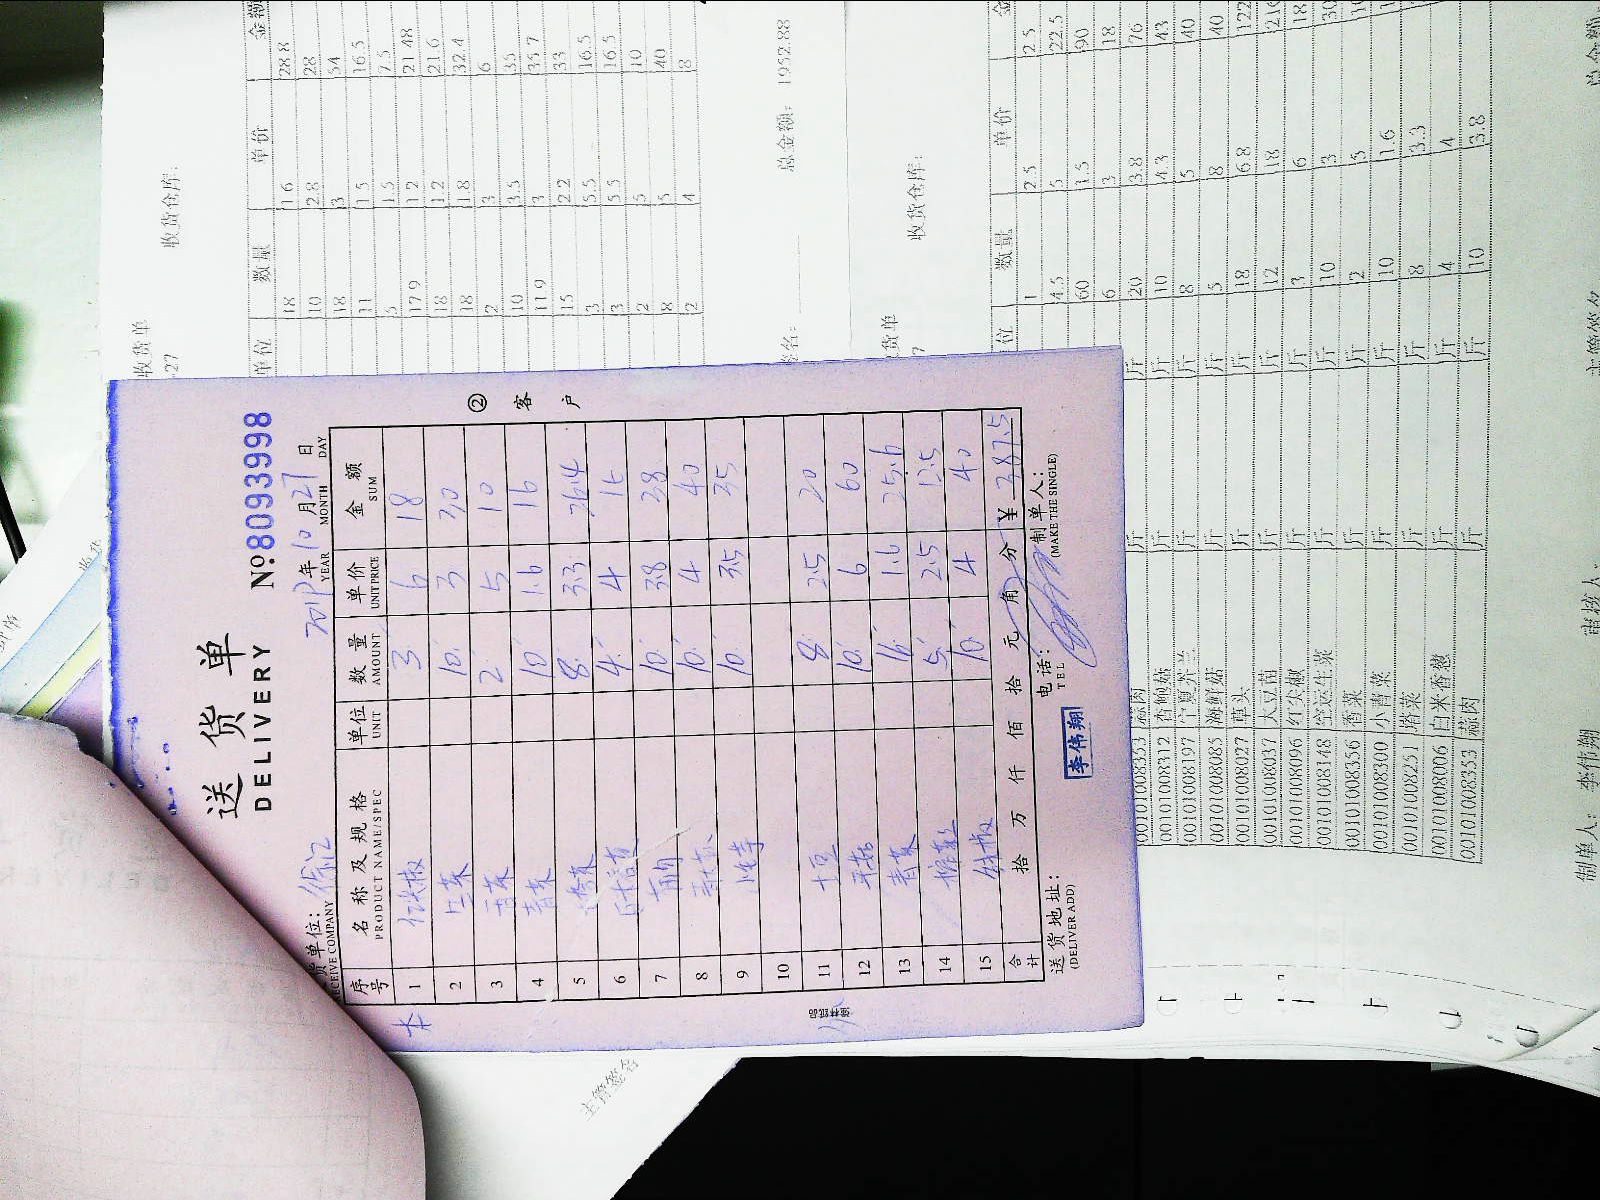 送货单
DELIVERY
№8093998
货单位: 徐汇
RECEIVE COMPANY
2019年10月27日
YEAR MONTH DAY
② 客户
序号 名称及规格 单位 数量 单价 金额
PRODUCT NAME/SPEC UNIT AMOUNT UNIT PRICE SUM
1 3 6 18
2 生菜 10 3 30
3 香菜 2 5 10
4 青菜 10 1.6 16
5 8 3.3 26.4
6 4 4 16
7 10 3.8 38
8 10 4 40
9 10 3.5 35
10
11 土豆 8 2.5 20
12 10 6 60
13 青菜 16 1.6 25.6
14 5 2.5 12.5
15 10 4 40
合计 拾 万 仟 佰 拾 元 角 分 ¥387.5
送货地址:
(DELIVER ADD)
李伟翔
电话:
TEL
制单人:
(MAKE THE SINGLE)
收货单
收货仓库:
单位 数量 单价 金额
18 1.6 28.8
10 2.8 28
18 3 54
11 1.5 16.5
5 1.5 7.5
17.9 1.2 21.48
18 1.2 21.6
18 1.8 32.4
2 3 6
10 3.5 35
11.9 3 35.7
15 2.2 33
3 5.5 16.5
3 5.5 16.5
2 5 10
8 5 40
2 4 8
总金额: 1952.88
货单
收货仓库:
位 数量 单价 金
1 2.5 2.5
4.5 5 22.5
60 1.5 90
6 3 18
00101008353 蒜肉 斤 斤 20 3.8 76
00101008312 杏鲍菇 斤 10 4.3 43
00101008197 宁夏芥兰 斤 斤 8 5 40
00101008085 海鲜菇 斤 斤 5 8 40
00101008027 草头 斤 斤 18 6.8 122
00101008037 大豆苗 斤 斤 12 18 216
00101008096 红尖椒 斤 斤 3 6 18
00101008148 空运生菜 斤 斤 10 3 30
00101008356 香菜 斤 斤 2 5 10
00101008300 小青菜 斤 斤 10 1.6
00101008251 塔菜 斤 斤 8 3.3
00101008006 白米香葱 斤 斤 4 4
00101008353 蒜肉 斤 斤 10 3.8
制单人: 李伟翔
审核人:
主管签名
总金额
主管签名